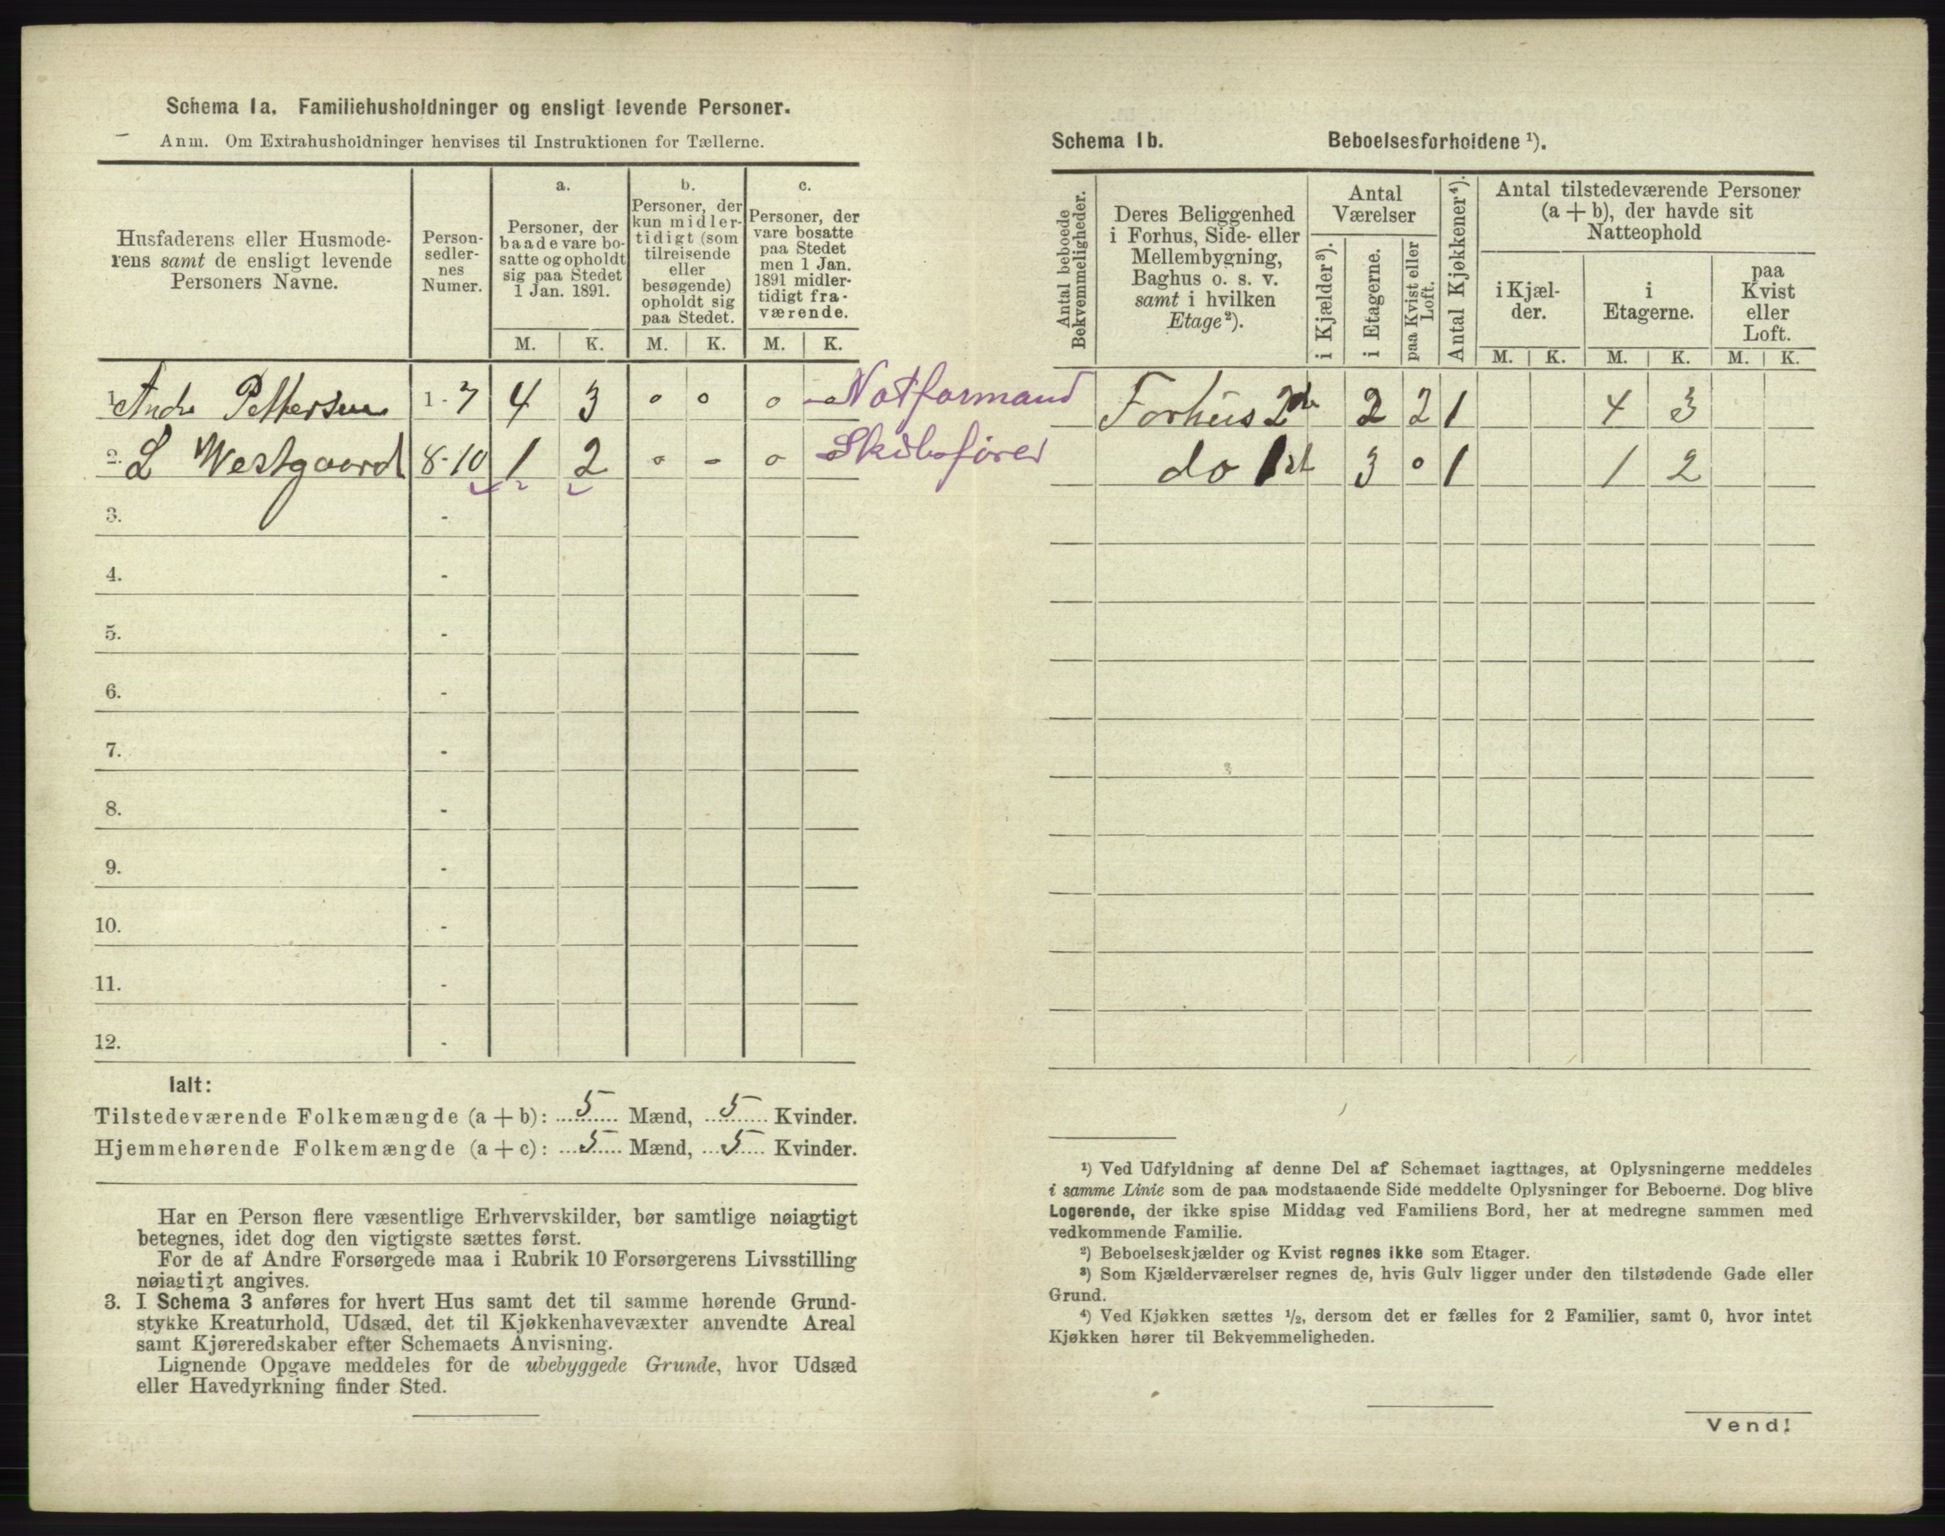 Schema 1a. Familiehusholdninger og ensligt levende Personer.
Anm. Om Extrahusholdninger henvises til Instruktionen for Tællerne.
Husfaderens eller Husmode-
rens samt de ensligt levende
Personers Navne.
Person-
sedler-
nes
Numer.
a.
Personer, der
baade vare bo-
satte og opholdt
sig paa Stedet
1 Jan. 1891.
b.
Personer, der
kun midler-
tidigt (som
tilreisende
eller
besøgende)
opholdt sig
paa Stedet.
c.
Personer, der
vare bosatte
paa Stedet
men 1 Jan.
1891 midler-
tidigt fra-
værende.
M. K. M. K. M. K.
1. Andr Pettersen 1-7 4 3 0 0 0 0 Notformand
2. L Westgaard 8-10 1 2 0 - 0 Skibsfører
3. -
4. -
5. -
6. -
7. -
8. -
9. -
10. -
11. -
12. -
Ialt:
Tilstedeværende Folkemængde (a + b): 5 Mænd, 5 Kvinder.
Hjemmehørende Folkemængde (a + c): 5 Mænd, 5 Kvinder.
Har en Person flere væsentlige Erhvervskilder, bør samtlige nøiagtigt
betegnes, idet dog den vigtigste sættes først.
For de af Andre Forsørgede maa i Rubrik 10 Forsørgerens Livsstilling
nøiagtigt angives.
3. I Schema 3 anføres for hvert Hus samt det til samme hørende Grund-
stykke Kreaturhold, Udsæd, det til Kjøkkenhavevæxter anvendte Areal
samt Kjøreredskaber efter Schemaets Anvisning.
Lignende Opgave meddeles for de ubebyggede Grunde, hvor Udsæd
eller Havedyrkning finder Sted.
Schema 1b. Beboelsesforholdene ¹).
Antal beboede
Bekvemmeligheder.
Deres Beliggenhed
i Forhus, Side- eller
Mellembygning,
Baghus o. s. v.
samt i hvilken
Etage²).
Antal
Værelser
i Kjælder³).
i Etagerne.
paa Kvist eller
Loft.
Antal Kjøkkener⁴).
Antal tilstedeværende Personer
(a + b), der havde sit
Natteophold
i Kjæl-
der.
i
Etagerne.
paa
Kvist
eller
Loft.
M. K. M. K. M. K.
Forhus 2de 2 2 1 4 3
do 1st 3 0 1 1 2
¹) Ved Udfyldning af denne Del af Schemaet iagttages, at Oplysningerne meddeles
i samme Linie som de paa modstaaende Side meddelte Oplysninger for Beboerne. Dog blive
Logerende, der ikke spise Middag ved Familiens Bord, her at medregne sammen med
vedkommende Familie.
²) Beboelseskjælder og Kvist regnes ikke som Etager.
³) Som Kjælderværelser regnes de, hvis Gulv ligger under den tilstødende Gade eller
Grund.
⁴) Ved Kjøkken sættes ½, dersom det er fælles for 2 Familier, samt 0, hvor intet
Kjøkken hører til Bekvemmeligheden.
Vend!